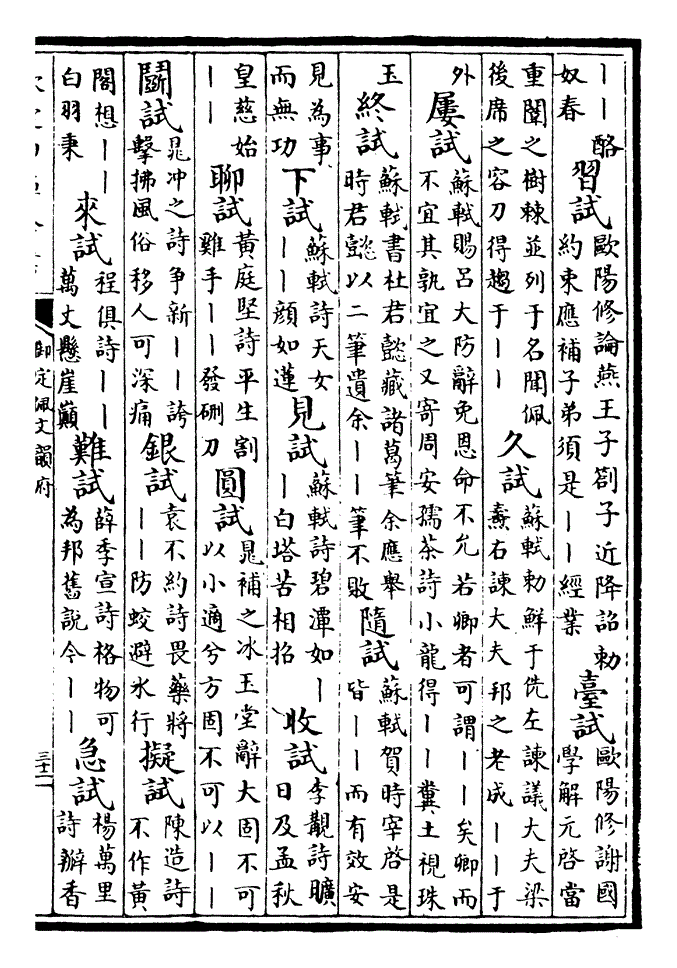 ——酪
奴春
習試
歐陽修論燕王子劄子近降詔勅
約束應補子弟須是——經業
臺試
歐陽修謝國
學解元啓當
重闈之樹棘並列于名聞佩
後席之容刀得趨于——
久試
蘇軾勅鮮于侁左諫議大夫梁
燾右諫大夫邦之老成——于
外
屢試
蘇軾賜呂大防辭免恩命不允若卿者可謂——矣卿而
不宜其孰宜之又寄周安孺茶詩小龍得——糞土視珠
玉
終試
蘇軾書杜君懿藏諸葛筆余應舉
時君懿以二筆遺余——筆不敗
隨試
蘇軾賀時宰啓是
皆——而有效安
見為事
而無功
下試
蘇軾詩天女
——顔如蓮
見試
蘇軾詩碧潭如—
—白塔苦相招
收試
李覯詩曠
日及孟秋
皇慈始
——
聊試
黃庭堅詩平生割
雞手——發硎刀
圓試
晁補之冰玉堂辭大固不可
以小適兮方固不可以——
鬭試
晁冲之詩争新——誇
擊拂風俗移人可深痛
銀試
袁不約詩畏藥將
——防蛟避水行
擬試
陳造詩
不作黃
閤想——
白羽秉
來試
程俱詩——
萬丈懸崖巔
難試
薛季宣詩格物可
為邦舊說今——
急試
楊萬里
詩瓣香
御定佩文韻府
三十二